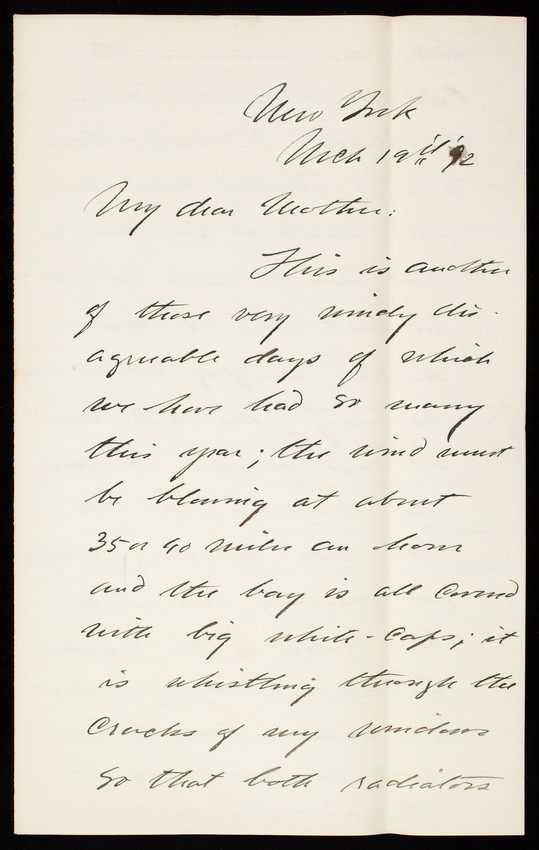 New York
Mch 19th '92
My dear Mother:
This is another
of those very windy dis-
agreeable days of which
we have had so many
this year; the wind must
be blowing at about
35 or 40 miles an hour
and the bay is all covered
with big white-caps; it
is whistling through the
cracks of my windows
so that both radiators